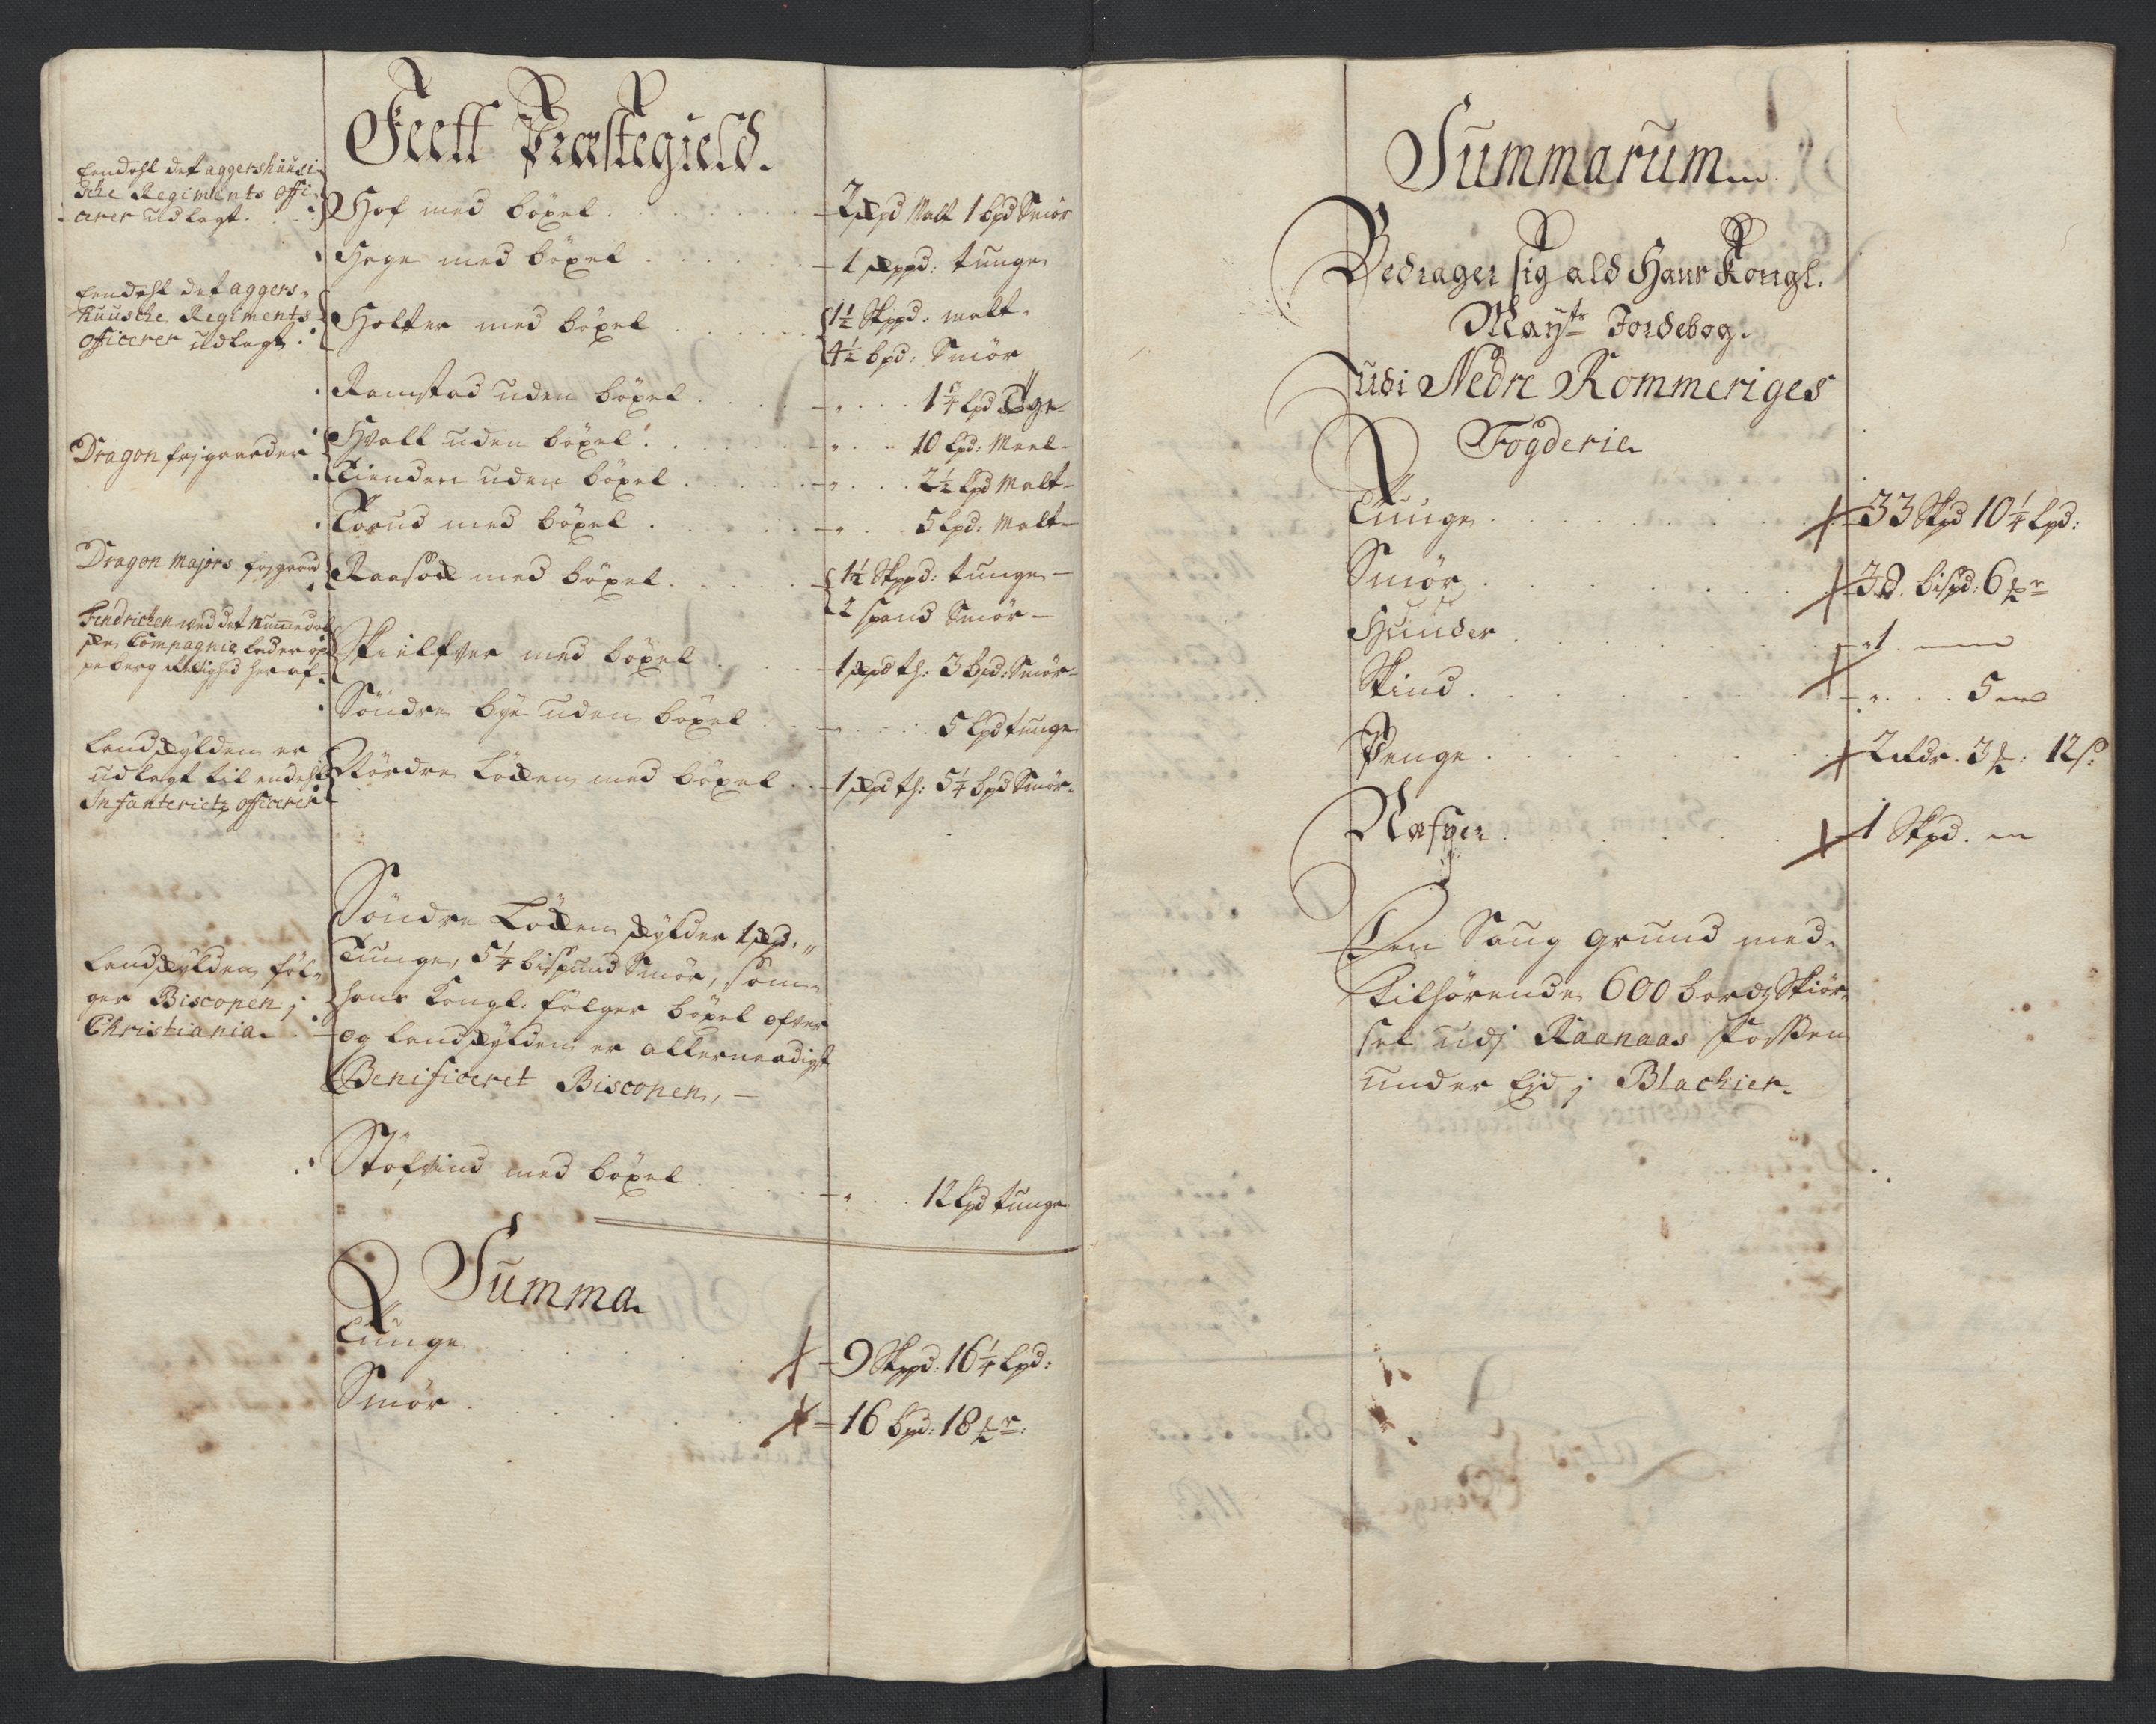 Feett Præstegield.
Eendehl det aggershuusi-
sche Regiments offi-
cerer udlagt.
Hof med böxel
2 skpd Malt 1 bpd Smör
Hege med böxel
1 skppd: tunge
Eendehl det aggers-
huusche Regiments
officerer udlagt.
Holter med böxel
1½ Skppd. malt.
4½ bpd: Smör
Ramstad uden böxel
Dragon frigaarder
Hvall uden böxel
10 Lpd: Meel
Tienden uden böxel
2½ Lpd Malt
Torud med böxel
5 Lpd: Malt
Dragon Majors frigaard
Raasok med böxel
1½ Skppd: tunge
2 spand Smör
Fendrichen ved det Nummedal
Compagnie
Skielfver med böxel
1 skpd th: 3 bpd: Smör
Söndre bye uden böxel
5 Lpd tunge
Landskylden er
udlagt til endehl
Infanteriets officerer
Nordre Löken med böxel
1 skpd th: 5¼ bpd Smör
Landskylden föl-
ger Biscopen j
Christiania.
Söndre Löken skylder 1 skpd.
Tunge, 5¼ bispund Smör, som
hans Kongl. fölger böxel ofver
og landskylden er allernaadigst
Benificeret Biscopen,
Stöfvind med böxel
12 Lpd tunge
Summa
Tunge
9 Skppd: 16¼ Lpd:
Smör
16 bpd: 18
Summarum
Bedrager sig ald Hans Kongl.
Mayts Jordebog.
udi Nedre Rommeriges
Fogderie
Tunge
33 Skpd 10¼ Lpd:
Smör
bispd: 6
Hunder
1
Skind
5
Penge
2 Rdr. 3 : 12 s:
Næfver
1 Skpd.
Een Saug grund med
tilhörende 600 bords Skiör-
sel udj Raanaas Fossen
under Eid j Blachier.